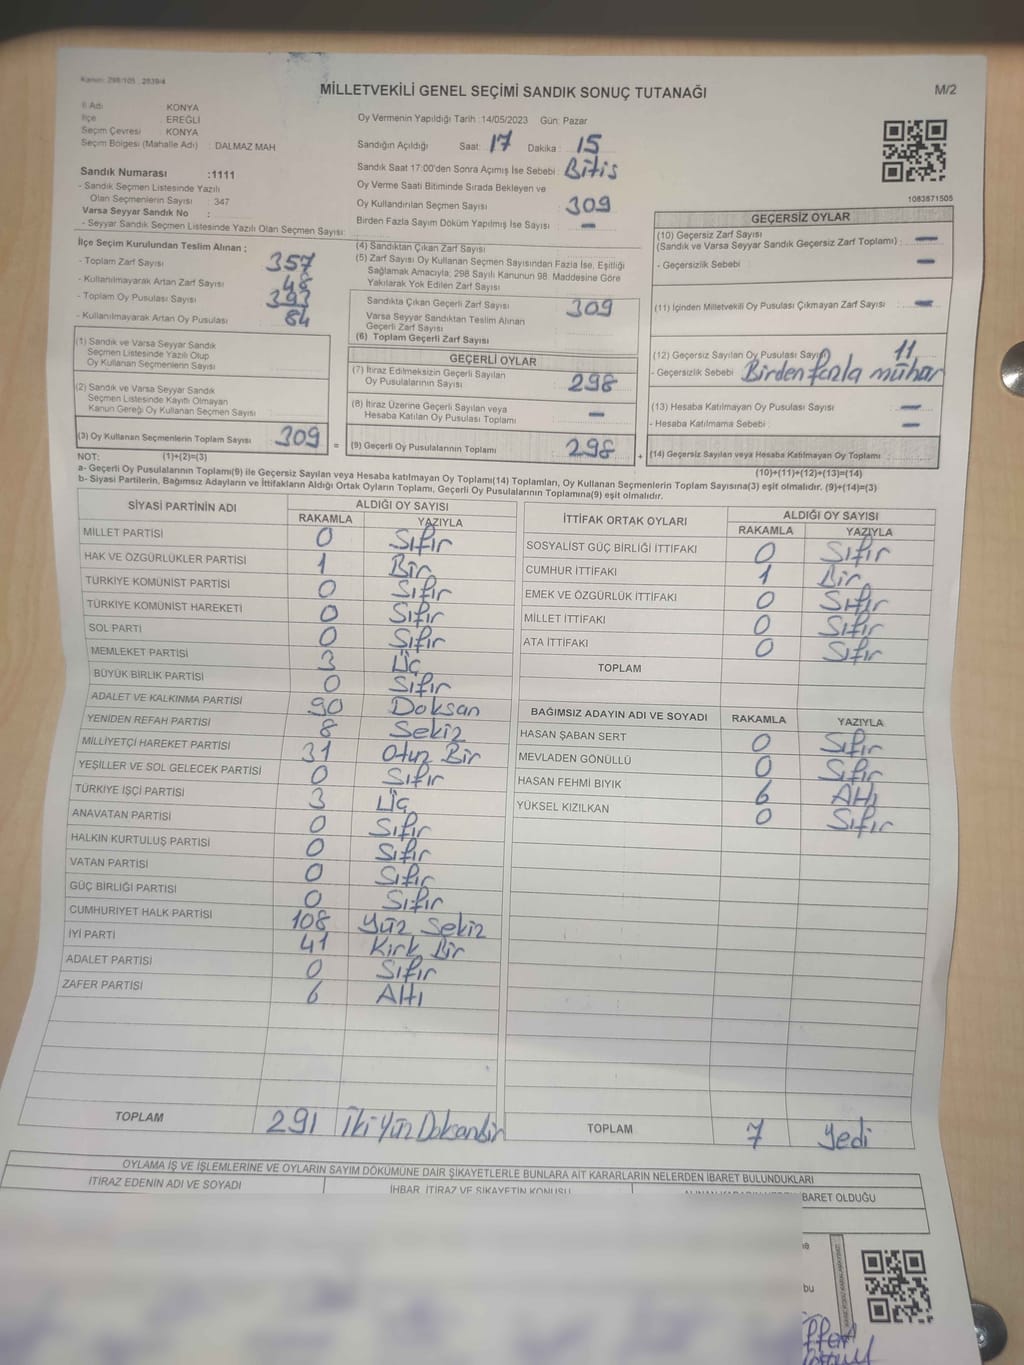 Kanun: 298/105 , 2839/4
MİLLETVEKİLİ GENEL SEÇİMİ SANDIK SONUÇ TUTANAĞI
M/2
İl Adı KONYA
İlçe EREĞLİ
Seçim Çevresi KONYA
Seçim Bölgesi (Mahalle Adı) : DALMAZ MAH
Sandık Numarası :1111
- Sandık Seçmen Listesinde Yazılı
Olan Seçmenlerin Sayısı : 347
Varsa Seyyar Sandık No :
- Seyyar Sandık Seçmen Listesinde Yazılı Olan Seçmen Sayısı:
Oy Vermenin Yapıldığı Tarih :14/05/2023 Gün: Pazar
Sandığın Açıldığı Saat: 17 Dakika : 15
Sandık Saat 17:00'den Sonra Açımış İse Sebebi : Bitiş
Oy Verme Saati Bitiminde Sırada Bekleyen ve
Oy Kullandırılan Seçmen Sayısı 309
Birden Fazla Sayım Döküm Yapılmış İse Sayısı : —
1083871505
İlçe Seçim Kurulundan Teslim Alınan ;
- Toplam Zarf Sayısı 357
- Kullanılmayarak Artan Zarf Sayısı 48
- Toplam Oy Pusulası Sayısı 393
- Kullanılmayarak Artan Oy Pusulası 84
(1) Sandık ve Varsa Seyyar Sandık
Seçmen Listesinde Yazılı Olup
Oy Kullanan Seçmenlerin Sayısı
(2) Sandık ve Varsa Seyyar Sandık
Seçmen Listesinde Kayıtlı Olmayan
Kanun Gereği Oy Kullanan Seçmen Sayısı
(3) Oy Kullanan Seçmenlerin Toplam Sayısı 309 =
(4) Sandıktan Çıkan Zarf Sayısı
(5) Zarf Sayısı Oy Kullanan Seçmen Sayısından Fazla İse, Eşitliği
Sağlamak Amacıyla; 298 Sayılı Kanunun 98. Maddesine Göre
Yakılarak Yok Edilen Zarf Sayısı
Sandıkta Çıkan Geçerli Zarf Sayısı 309
Varsa Seyyar Sandıktan Teslim Alınan
Geçerli Zarf Sayısı
(6) Toplam Geçerli Zarf Sayısı
GEÇERLİ OYLAR
(7) İtiraz Edilmeksizin Geçerli Sayılan
Oy Pusulalarının Sayısı 298
(8) İtiraz Üzerine Geçerli Sayılan veya
Hesaba Katılan Oy Pusulası Toplamı —
(9) Geçerli Oy Pusulalarının Toplamı 298 +
GEÇERSİZ OYLAR
(10) Geçersiz Zarf Sayısı
(Sandık ve Varsa Seyyar Sandık Geçersiz Zarf Toplamı) : —
- Geçersizlik Sebebi —
(11) İçinden Milletvekili Oy Pusulası Çıkmayan Zarf Sayısı : —
(12) Geçersiz Sayılan Oy Pusulası Sayısı 11
- Geçersizlik Sebebi Birden fazla mühür
(13) Hesaba Katılmayan Oy Pusulası Sayısı —
- Hesaba Katılmama Sebebi : —
(14) Geçersiz Sayılan veya Hesaba Katılmayan Oy Toplamı
NOT: (1)+(2)=(3)
(10)+(11)+(12)+(13)=(14)
a- Geçerli Oy Pusulalarının Toplamı(9) ile Geçersiz Sayılan veya Hesaba katılmayan Oy Toplamı(14) Toplamları, Oy Kullanan Seçmenlerin Toplam Sayısına(3) eşit olmalıdır. (9)+(14)=(3)
b- Siyasi Partilerin, Bağımsız Adayların ve İttifakların Aldığı Ortak Oyların Toplamı, Geçerli Oy Pusulalarının Toplamına(9) eşit olmalıdır.
SİYASİ PARTİNİN ADI ALDIĞI OY SAYISI
RAKAMLA YAZIYLA
MİLLET PARTİSİ 0 Sıfır
HAK VE ÖZGÜRLÜKLER PARTİSİ 1 Bir
TÜRKİYE KOMÜNİST PARTİSİ 0 Sıfır
TÜRKİYE KOMÜNİST HAREKETİ 0 Sıfır
SOL PARTİ 0 Sıfır
MEMLEKET PARTİSİ 3 Üç
BÜYÜK BİRLİK PARTİSİ 0 Sıfır
ADALET VE KALKINMA PARTİSİ 90 Doksan
YENİDEN REFAH PARTİSİ 8 Sekiz
MİLLİYETÇİ HAREKET PARTİSİ 31 Otuz Bir
YEŞİLLER VE SOL GELECEK PARTİSİ 0 Sıfır
TÜRKİYE İŞÇİ PARTİSİ 3 Üç
ANAVATAN PARTİSİ 0 Sıfır
HALKIN KURTULUŞ PARTİSİ 0 Sıfır
VATAN PARTİSİ 0 Sıfır
GÜÇ BİRLİĞİ PARTİSİ 0 Sıfır
CUMHURİYET HALK PARTİSİ 108 Yüz Sekiz
İYİ PARTİ 41 Kırk Bir
ADALET PARTİSİ 0 Sıfır
ZAFER PARTİSİ 6 Altı
TOPLAM 291 İki Yüz Doksanbir
İTTİFAK ORTAK OYLARI ALDIĞI OY SAYISI
RAKAMLA YAZIYLA
SOSYALİST GÜÇ BİRLİĞİ İTTİFAKI 0 Sıfır
CUMHUR İTTİFAKI 1 Bir
EMEK VE ÖZGÜRLÜK İTTİFAKI 0 Sıfır
MİLLET İTTİFAKI 0 Sıfır
ATA İTTİFAKI 0 Sıfır
TOPLAM
BAĞIMSIZ ADAYIN ADI VE SOYADI RAKAMLA YAZIYLA
HASAN ŞABAN SERT 0 Sıfır
MEVLADEN GÖNÜLLÜ 0 Sıfır
HASAN FEHMİ BIYIK 6 Altı
YÜKSEL KIZILKAN 0 Sıfır
TOPLAM 7 Yedi
OYLAMA İŞ VE İŞLEMLERİNE VE OYLARIN SAYIM DÖKÜMÜNE DAİR ŞİKAYETLERLE BUNLARA AİT KARARLARIN NELERDEN İBARET BULUNDUKLARI
İTİRAZ EDENİN ADI VE SOYADI İHBAR, İTİRAZ VE ŞİKAYETİN KONUSU BARET OLDUĞU
bu